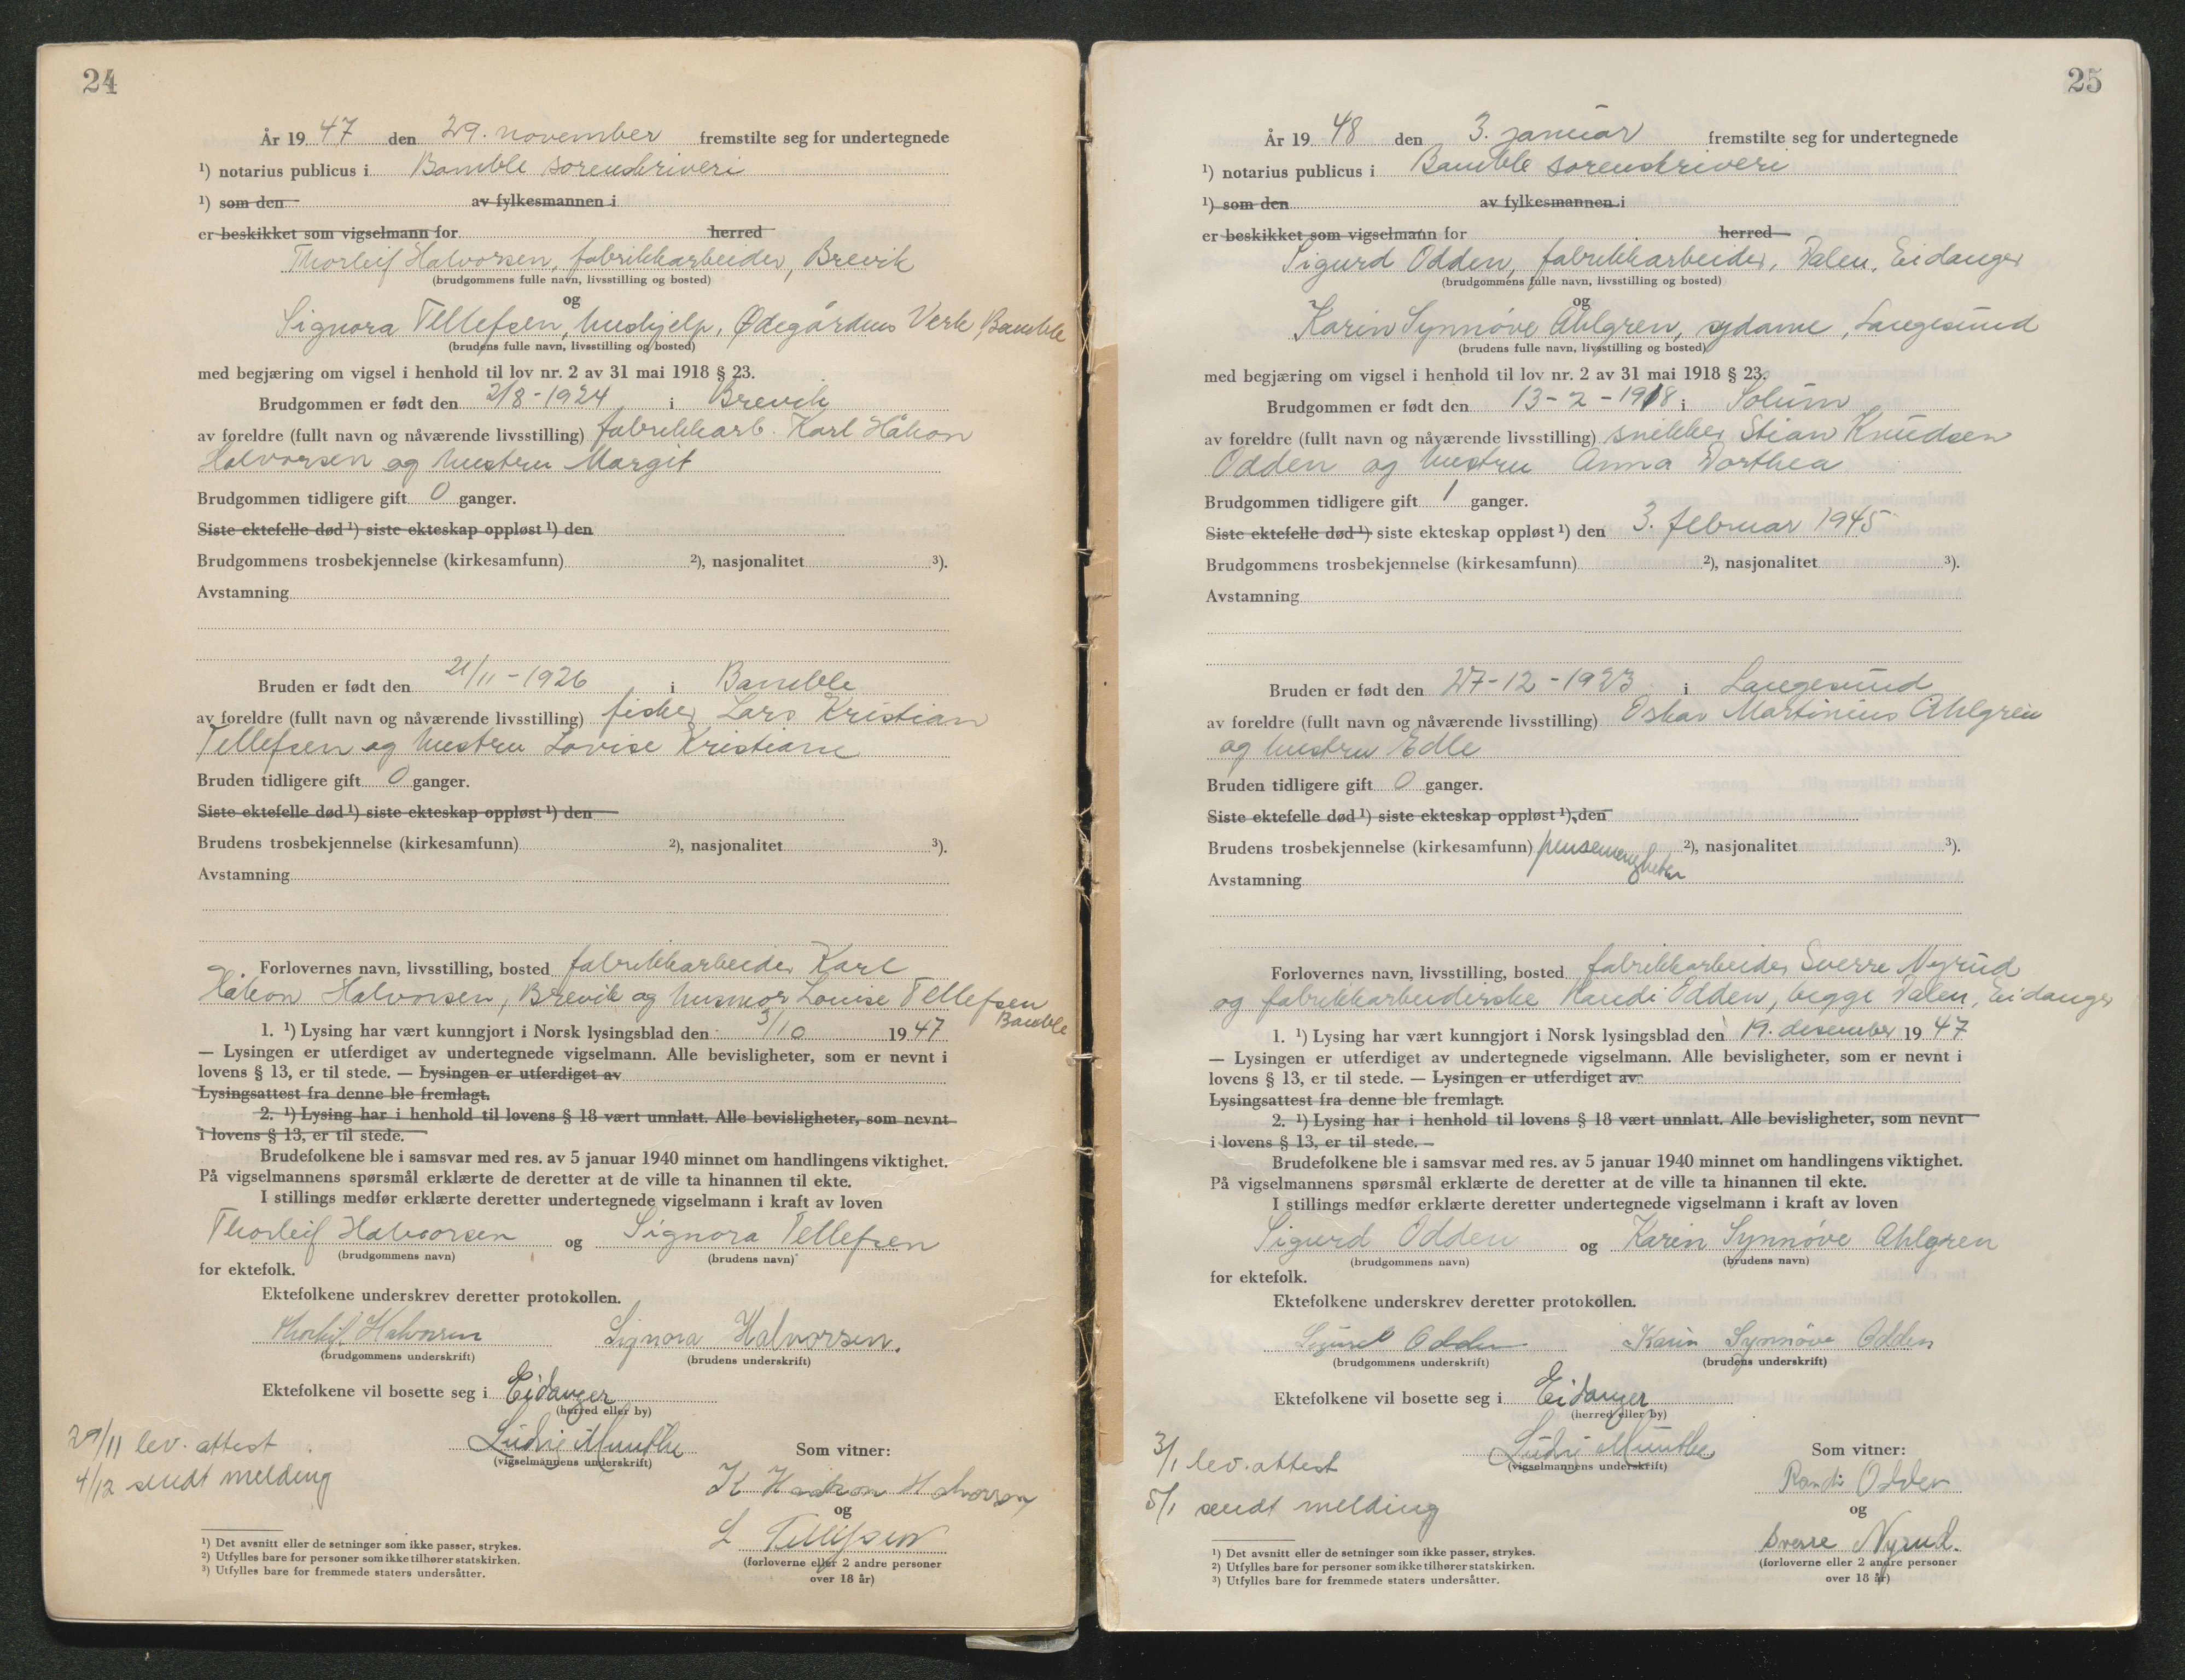 24
År 19 47 den 29. november fremstilte seg for undertegnede
¹) notarius publicus i Bamble sorenskriveri
¹) som den av fylkesmannen i
er beskikket som vigselmann for herred
Thorleif Halvorsen, fabrikkarbeider, Brevik
(brudgommens fulle navn, livsstilling og bosted)
og
Signora Tellefsen, hushjelp, Ødegårdens Verk, Bamble
(brudens fulle navn, livsstilling og bosted)
med begjæring om vigsel i henhold til lov nr. 2 av 31 mai 1918 § 23.
Brudgommen er født den 2/8-1924 i Brevik
av foreldre (fullt navn og nåværende livsstilling) fabrikkarb. Karl Håkon
Halvorsen og hustru Margit
Brudgommen tidligere gift 0 ganger.
Siste ektefelle død ¹) siste ekteskap oppløst ¹) den
Brudgommens trosbekjennelse (kirkesamfunn) ²), nasjonalitet ³).
Avstamning
Bruden er født den 21/11-1926 i Bamble
av foreldre (fullt navn og nåværende livsstilling) fisker Lars Kristian
Tellefsen og hustru Lovise Kristiane
Bruden tidligere gift 0 ganger.
Siste ektefelle død ¹) siste ekteskap oppløst ¹) den
Brudens trosbekjennelse (kirkesamfunn) ²), nasjonalitet ³).
Avstamning
Forlovernes navn, livsstilling, bosted fabrikkarbeider Karl
Håkon Halvorsen, Brevik og husmor Louise Tellefsen
Bamble
1. ¹) Lysing har vært kunngjort i Norsk lysingsblad den 3/10 19 47
— Lysingen er utferdiget av undertegnede vigselmann. Alle bevisligheter, som er nevnt i
lovens § 13, er til stede. — Lysingen er utferdiget av
Lysingsattest fra denne ble fremlagt.
2. ¹) Lysing har i henhold til lovens § 18 vært unnlatt. Alle bevisligheter, som nevnt
i lovens § 13, er til stede.
Brudefolkene ble i samsvar med res. av 5 januar 1940 minnet om handlingens viktighet.
På vigselmannens spørsmål erklærte de deretter at de ville ta hinannen til ekte.
I stillings medfør erklærte deretter undertegnede vigselmann i kraft av loven
Thorleif Halvorsen og Signora Tellefsen
(brudgommens navn) (brudens navn)
for ektefolk.
Ektefolkene underskrev deretter protokollen.
Thorleif Halvorsen Signora Halvorsen.
(brudgommens underskrift) (brudens underskrift)
Ektefolkene vil bosette seg i Eidanger
(herred eller by)
29/11 lev. attest Ludvig Munthe Som vitner:
(vigselmannens underskrift)
4/12 sendt melding
K Haakon Halvorsen
og
L Tellefsen
(forloverne eller 2 andre personer
over 18 år)
¹) Det avsnitt eller de setninger som ikke passer, strykes.
²) Utfylles bare for personer som ikke tilhører statskirken.
³) Utfylles bare for fremmede staters undersåtter.
25
År 19 48 den 3. januar fremstilte seg for undertegnede
¹) notarius publicus i Bamble sorenskriveri
¹) som den av fylkesmannen i
er beskikket som vigselmann for herred
Sigurd Odden, fabrikkarbeider, Dalen, Eidanger
(brudgommens fulle navn, livsstilling og bosted)
og
Karin Synnøve Ahlgren, sydame, Langesund
(brudens fulle navn, livsstilling og bosted)
med begjæring om vigsel i henhold til lov nr. 2 av 31 mai 1918 § 23.
Brudgommen er født den 13-2-1918 i Solum
av foreldre (fullt navn og nåværende livsstilling) snekker Stian Knudsen
Odden og hustru Anna Dorthea
Brudgommen tidligere gift 1 ganger.
Siste ektefelle død ¹) siste ekteskap oppløst ¹) den 3. februar 1945
Brudgommens trosbekjennelse (kirkesamfunn) ²), nasjonalitet ³).
Avstamning
Bruden er født den 27-12-1923 i Langesund
av foreldre (fullt navn og nåværende livsstilling) Oskar Martinius Ahlgren
og hustru Edle
Bruden tidligere gift 0 ganger.
Siste ektefelle død ¹) siste ekteskap oppløst ¹) den
Brudens trosbekjennelse (kirkesamfunn) pinsemenigheten ²), nasjonalitet ³).
Avstamning
Forlovernes navn, livsstilling, bosted fabrikkarbeider Sverre Nyrud
og fabrikkarbeiderske Randi Odden, begge Dalen, Eidanger
1. ¹) Lysing har vært kunngjort i Norsk lysingsblad den 19. desember 19 47
— Lysingen er utferdiget av undertegnede vigselmann. Alle bevisligheter, som er nevnt i
lovens § 13, er til stede. — Lysingen er utferdiget av
Lysingsattest fra denne ble fremlagt.
2. ¹) Lysing har i henhold til lovens § 18 vært unnlatt. Alle bevisligheter, som nevnt
i lovens § 13, er til stede.
Brudefolkene ble i samsvar med res. av 5 januar 1940 minnet om handlingens viktighet.
På vigselmannens spørsmål erklærte de deretter at de ville ta hinannen til ekte.
I stillings medfør erklærte deretter undertegnede vigselmann i kraft av loven
Sigurd Odden og Karin Synnøve Ahlgren
(brudgommens navn) (brudens navn)
for ektefolk.
Ektefolkene underskrev deretter protokollen.
Sigurd Odden Karin Synnøve Odden
(brudgommens underskrift) (brudens underskrift)
Ektefolkene vil bosette seg i Eidanger
(herred eller by)
3/1 lev. attest Ludvig Munthe Som vitner:
(vigselmannens underskrift)
5/1 sendt melding
Randi Odden
og
Sverre Nyrud.
(forloverne eller 2 andre personer
over 18 år)
¹) Det avsnitt eller de setninger som ikke passer, strykes.
²) Utfylles bare for personer som ikke tilhører statskirken.
³) Utfylles bare for fremmede staters undersåtter.